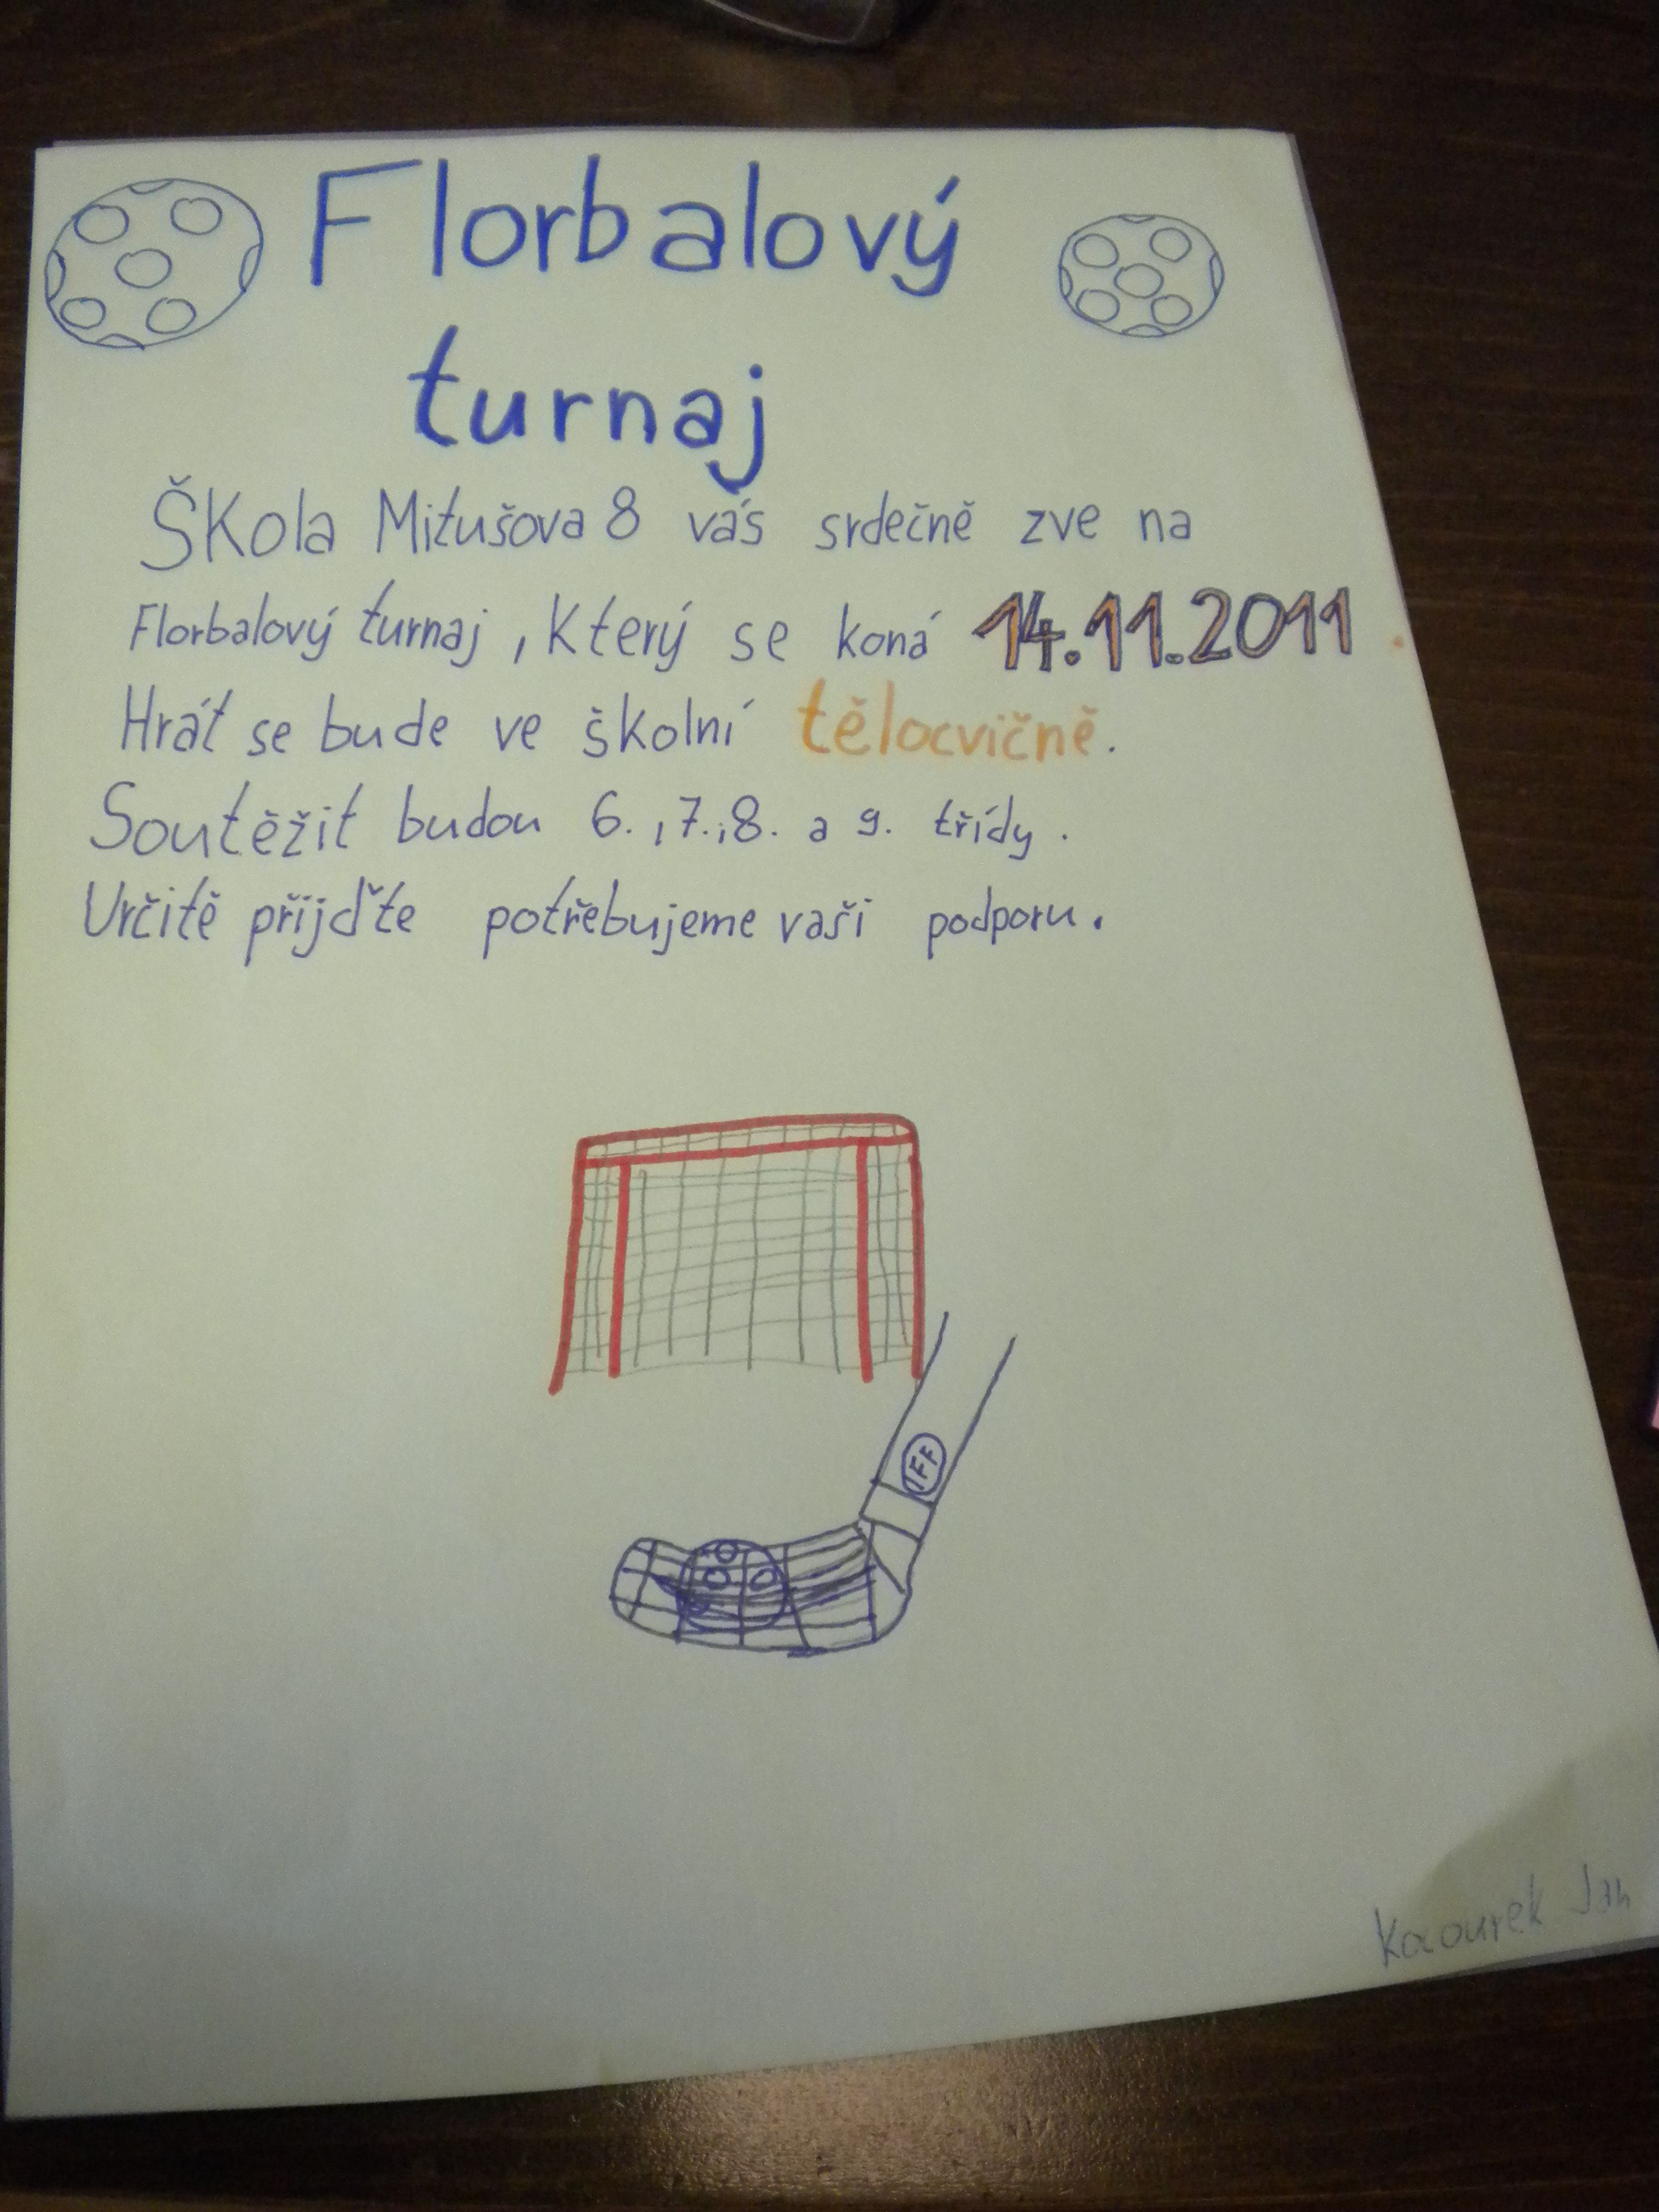 Florbalový
turnaj
Škola Mitušova 8 vás srdečně zve na
Florbalový turnaj, který se koná 14.11.2011.
Hrát se bude ve školní tělocvičně.
Soutěžit budou 6.,7.,8. a 9. třídy.
Určitě přijďte potřebujeme vaši podporu.
IFF
Jan